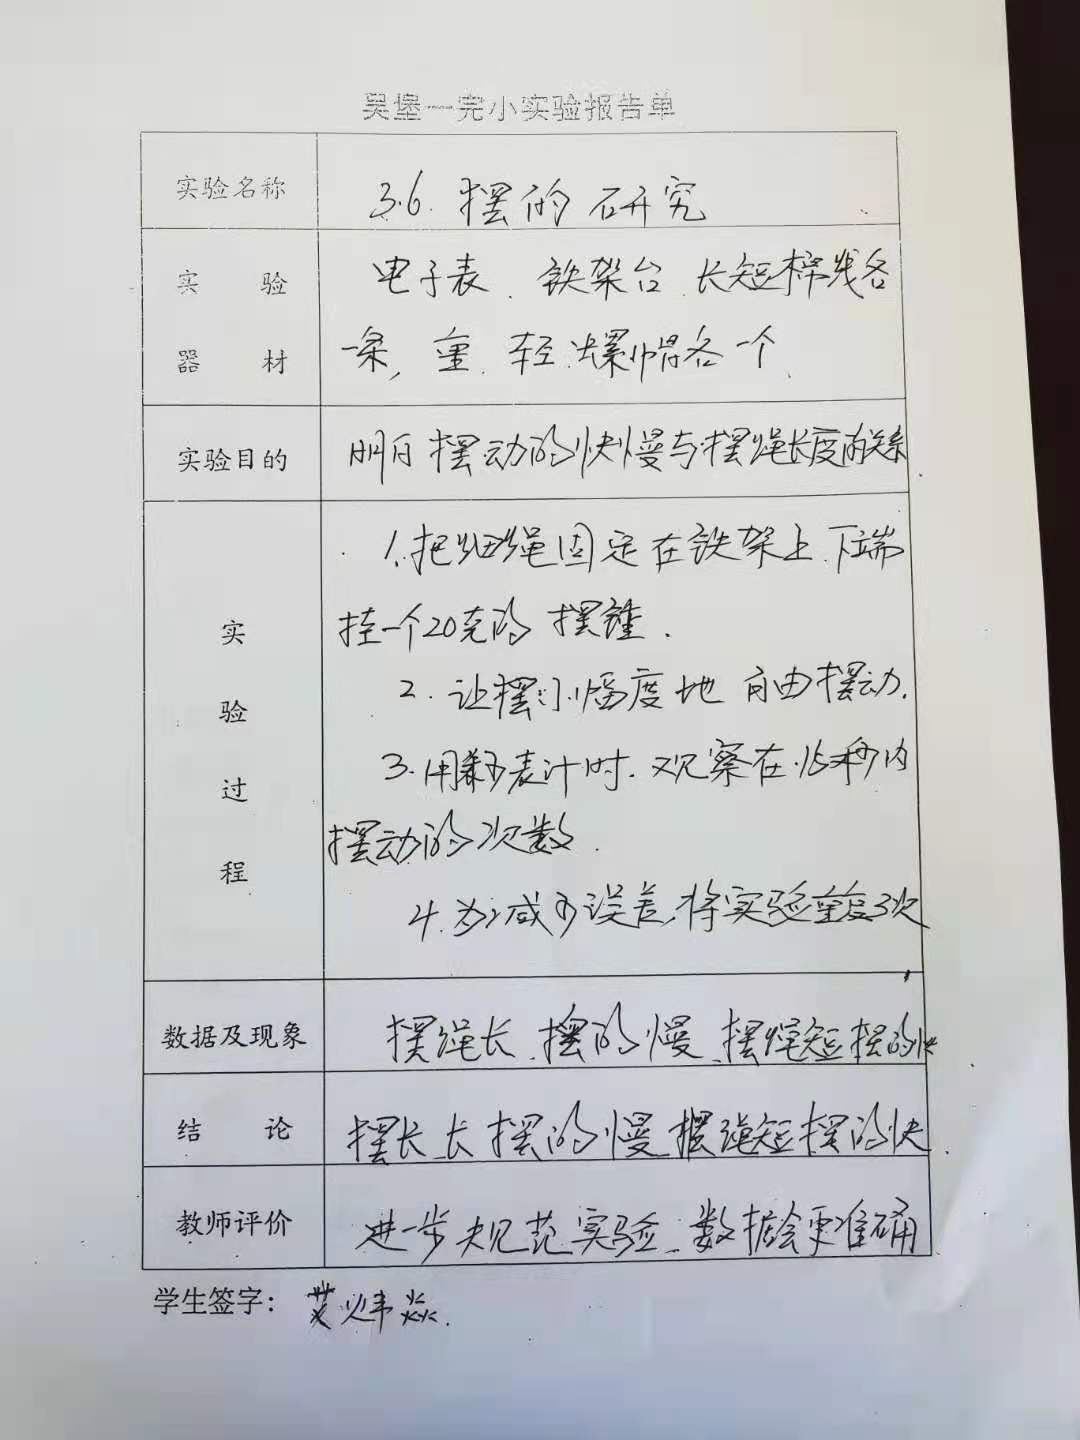 吴堡一完小实验报告单
实验名称 3.6. 摆的研究
实验器材 电子表、铁架台、长短棉线各
一条, 重、轻螺帽各一个、
实验目的 明白摆动的快慢与摆绳长度的关系
实验过程 1.把细绳固定在铁架上、下端
挂一个20克的摆锤.
2. 让摆小幅度地自由摆动.
3.用秒表计时.观察在15秒内
摆动的次数.
4.为减少误差,将实验重复3次
数据及现象 摆绳长、摆的慢、摆绳短摆的快
结论 摆长长摆的慢摆绳短摆的快
教师评价 进一步规范实验、数据会更准确
学生签字: